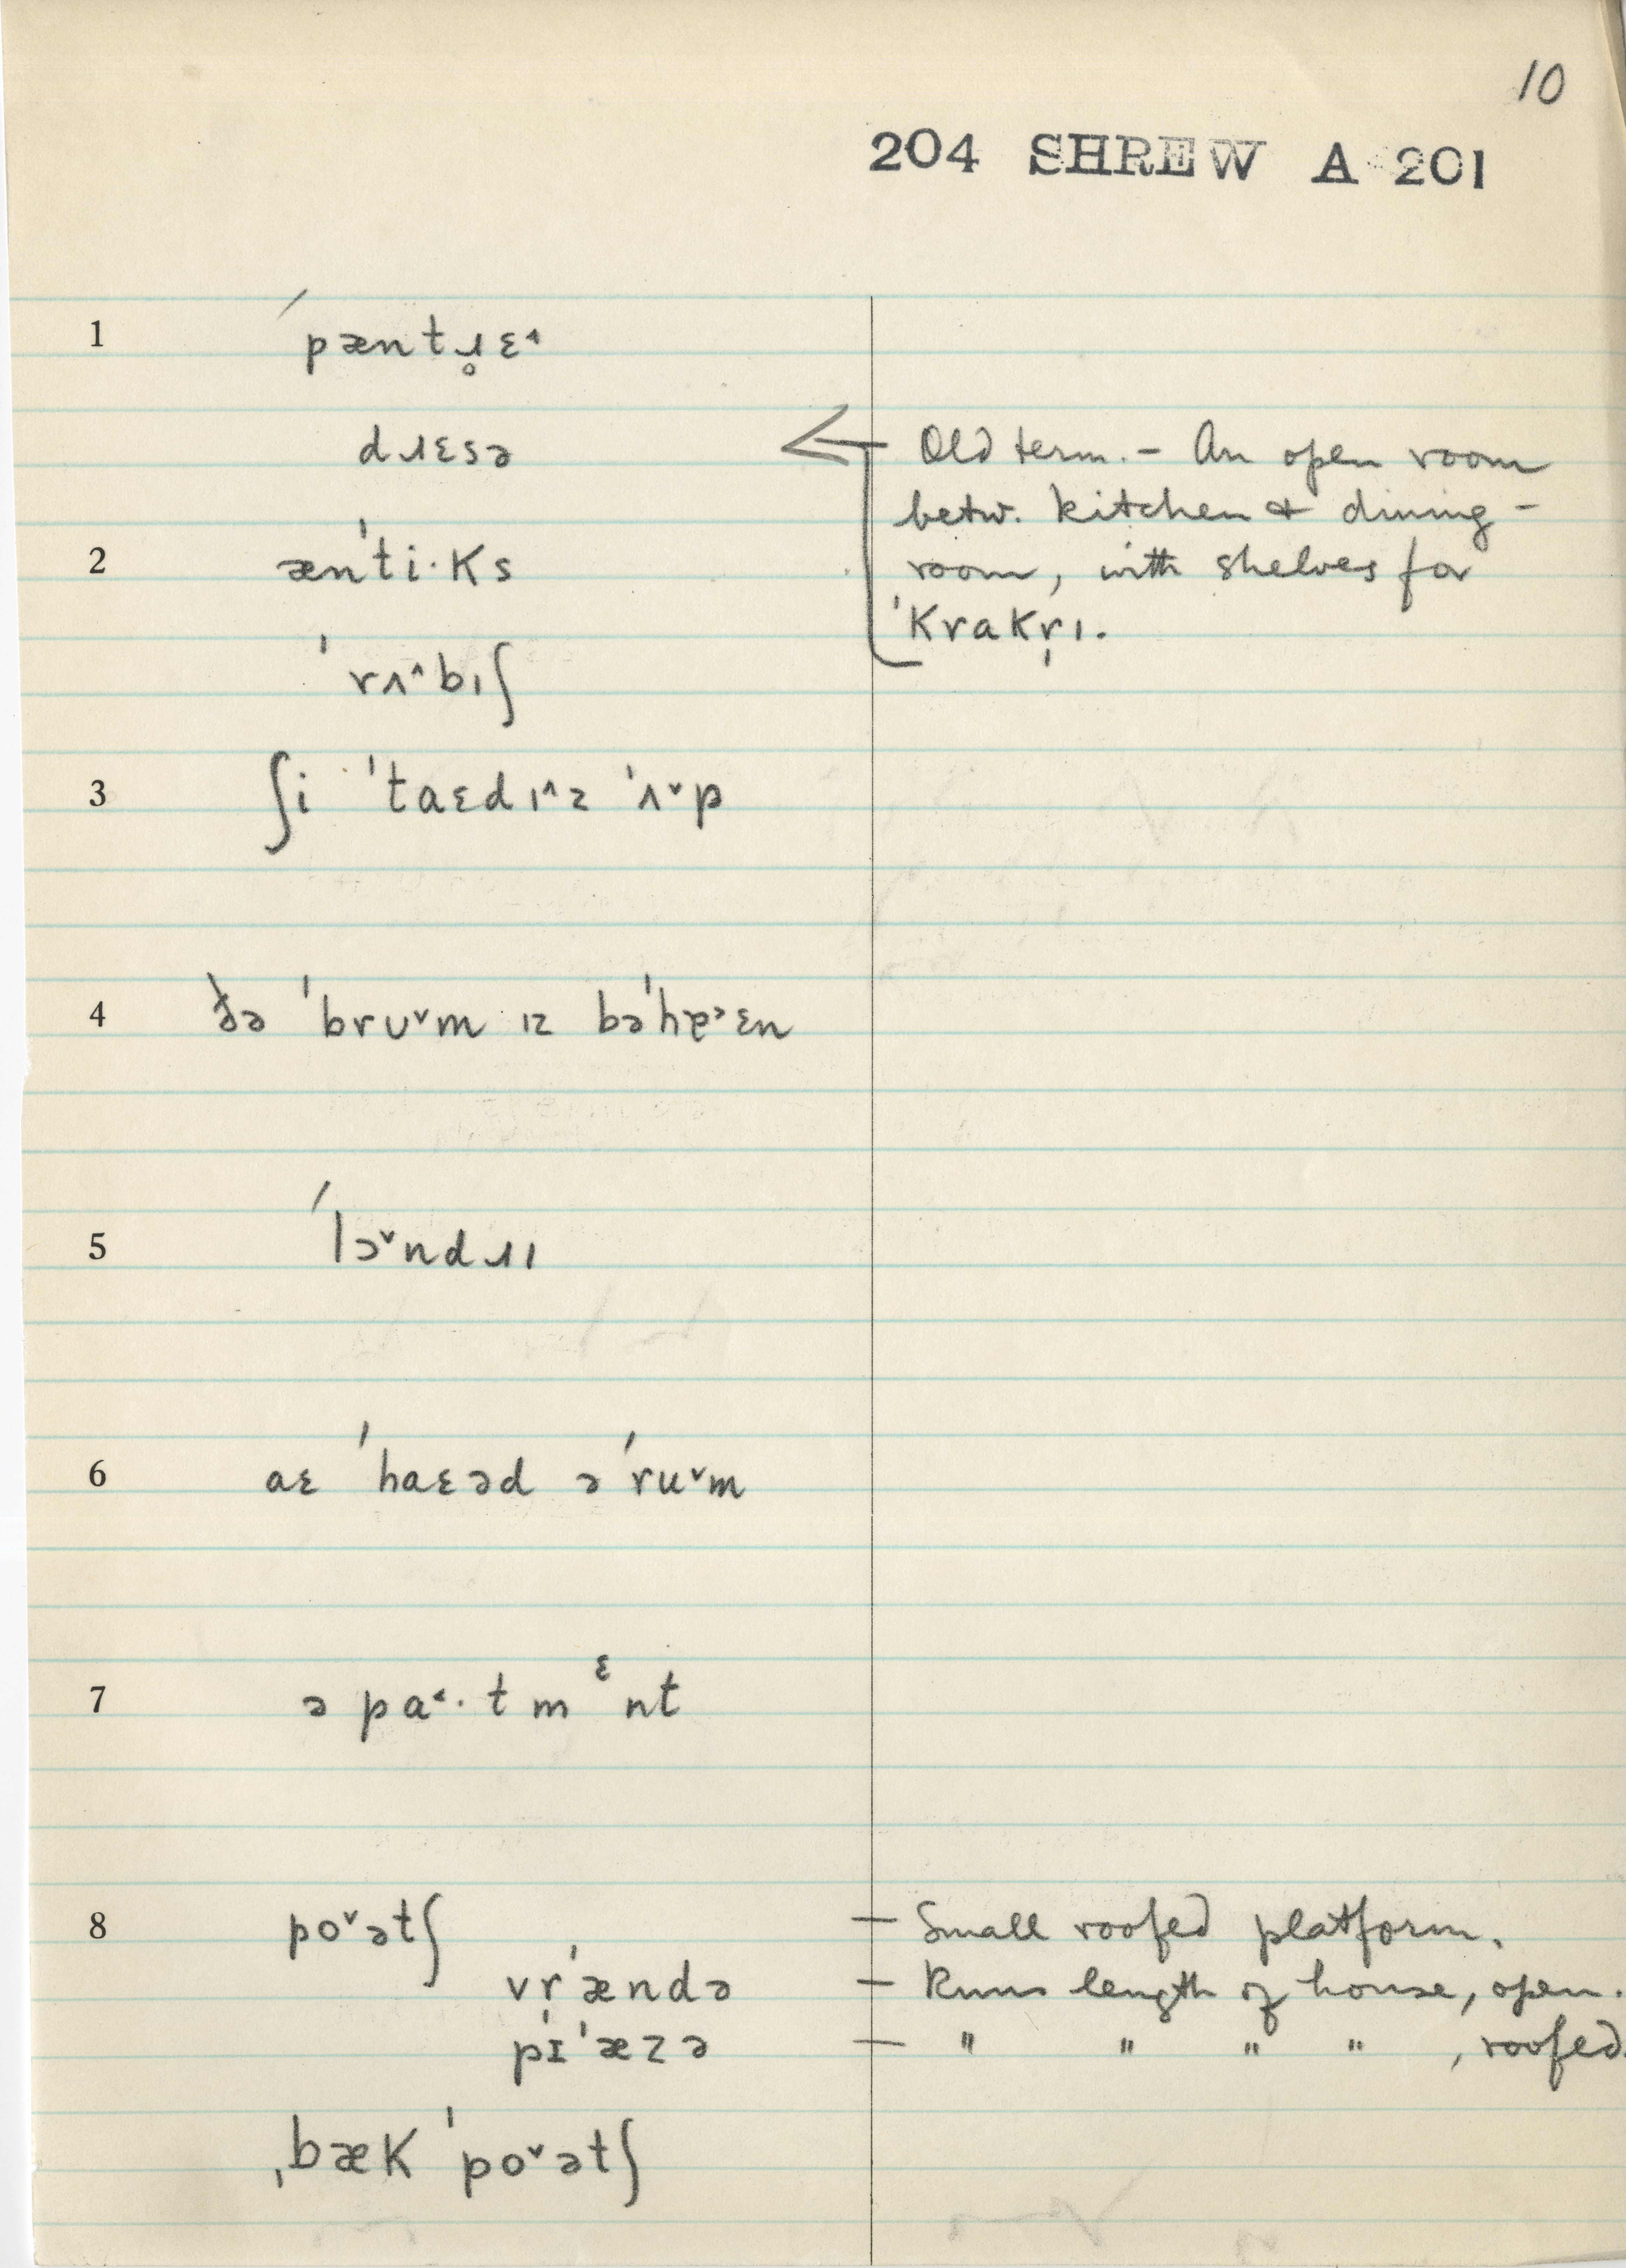 10
204 SHREW A 201
1 ˈpæntɹ̥ɛ^
dɹɛsə
Old term. – An open room
betw. kitchen & dining-
room, with shelves for
ˈkrakr̩ɪ.
2 ænˈti·ks
ˈrʌ^bɪʃ
3 ʃi ˈtaɛdɪ^z ˈʌ˅p
4 ðə ˈbrʊ˅m ɪz bəˈhɐ˃ɛn
5 ˈlɔ˅ndɹɪ
6 aɛ ˈhaɛəd ə ˈru˅m
7 ə pa˂·tmᵋnt
8 po˅ətʃ – Small roofed platform.
vr̩ˈændə – Runs length of house, open.
pɪˈæzə – " " " " , roofed.
ˌbæk ˈpo˅ətʃ